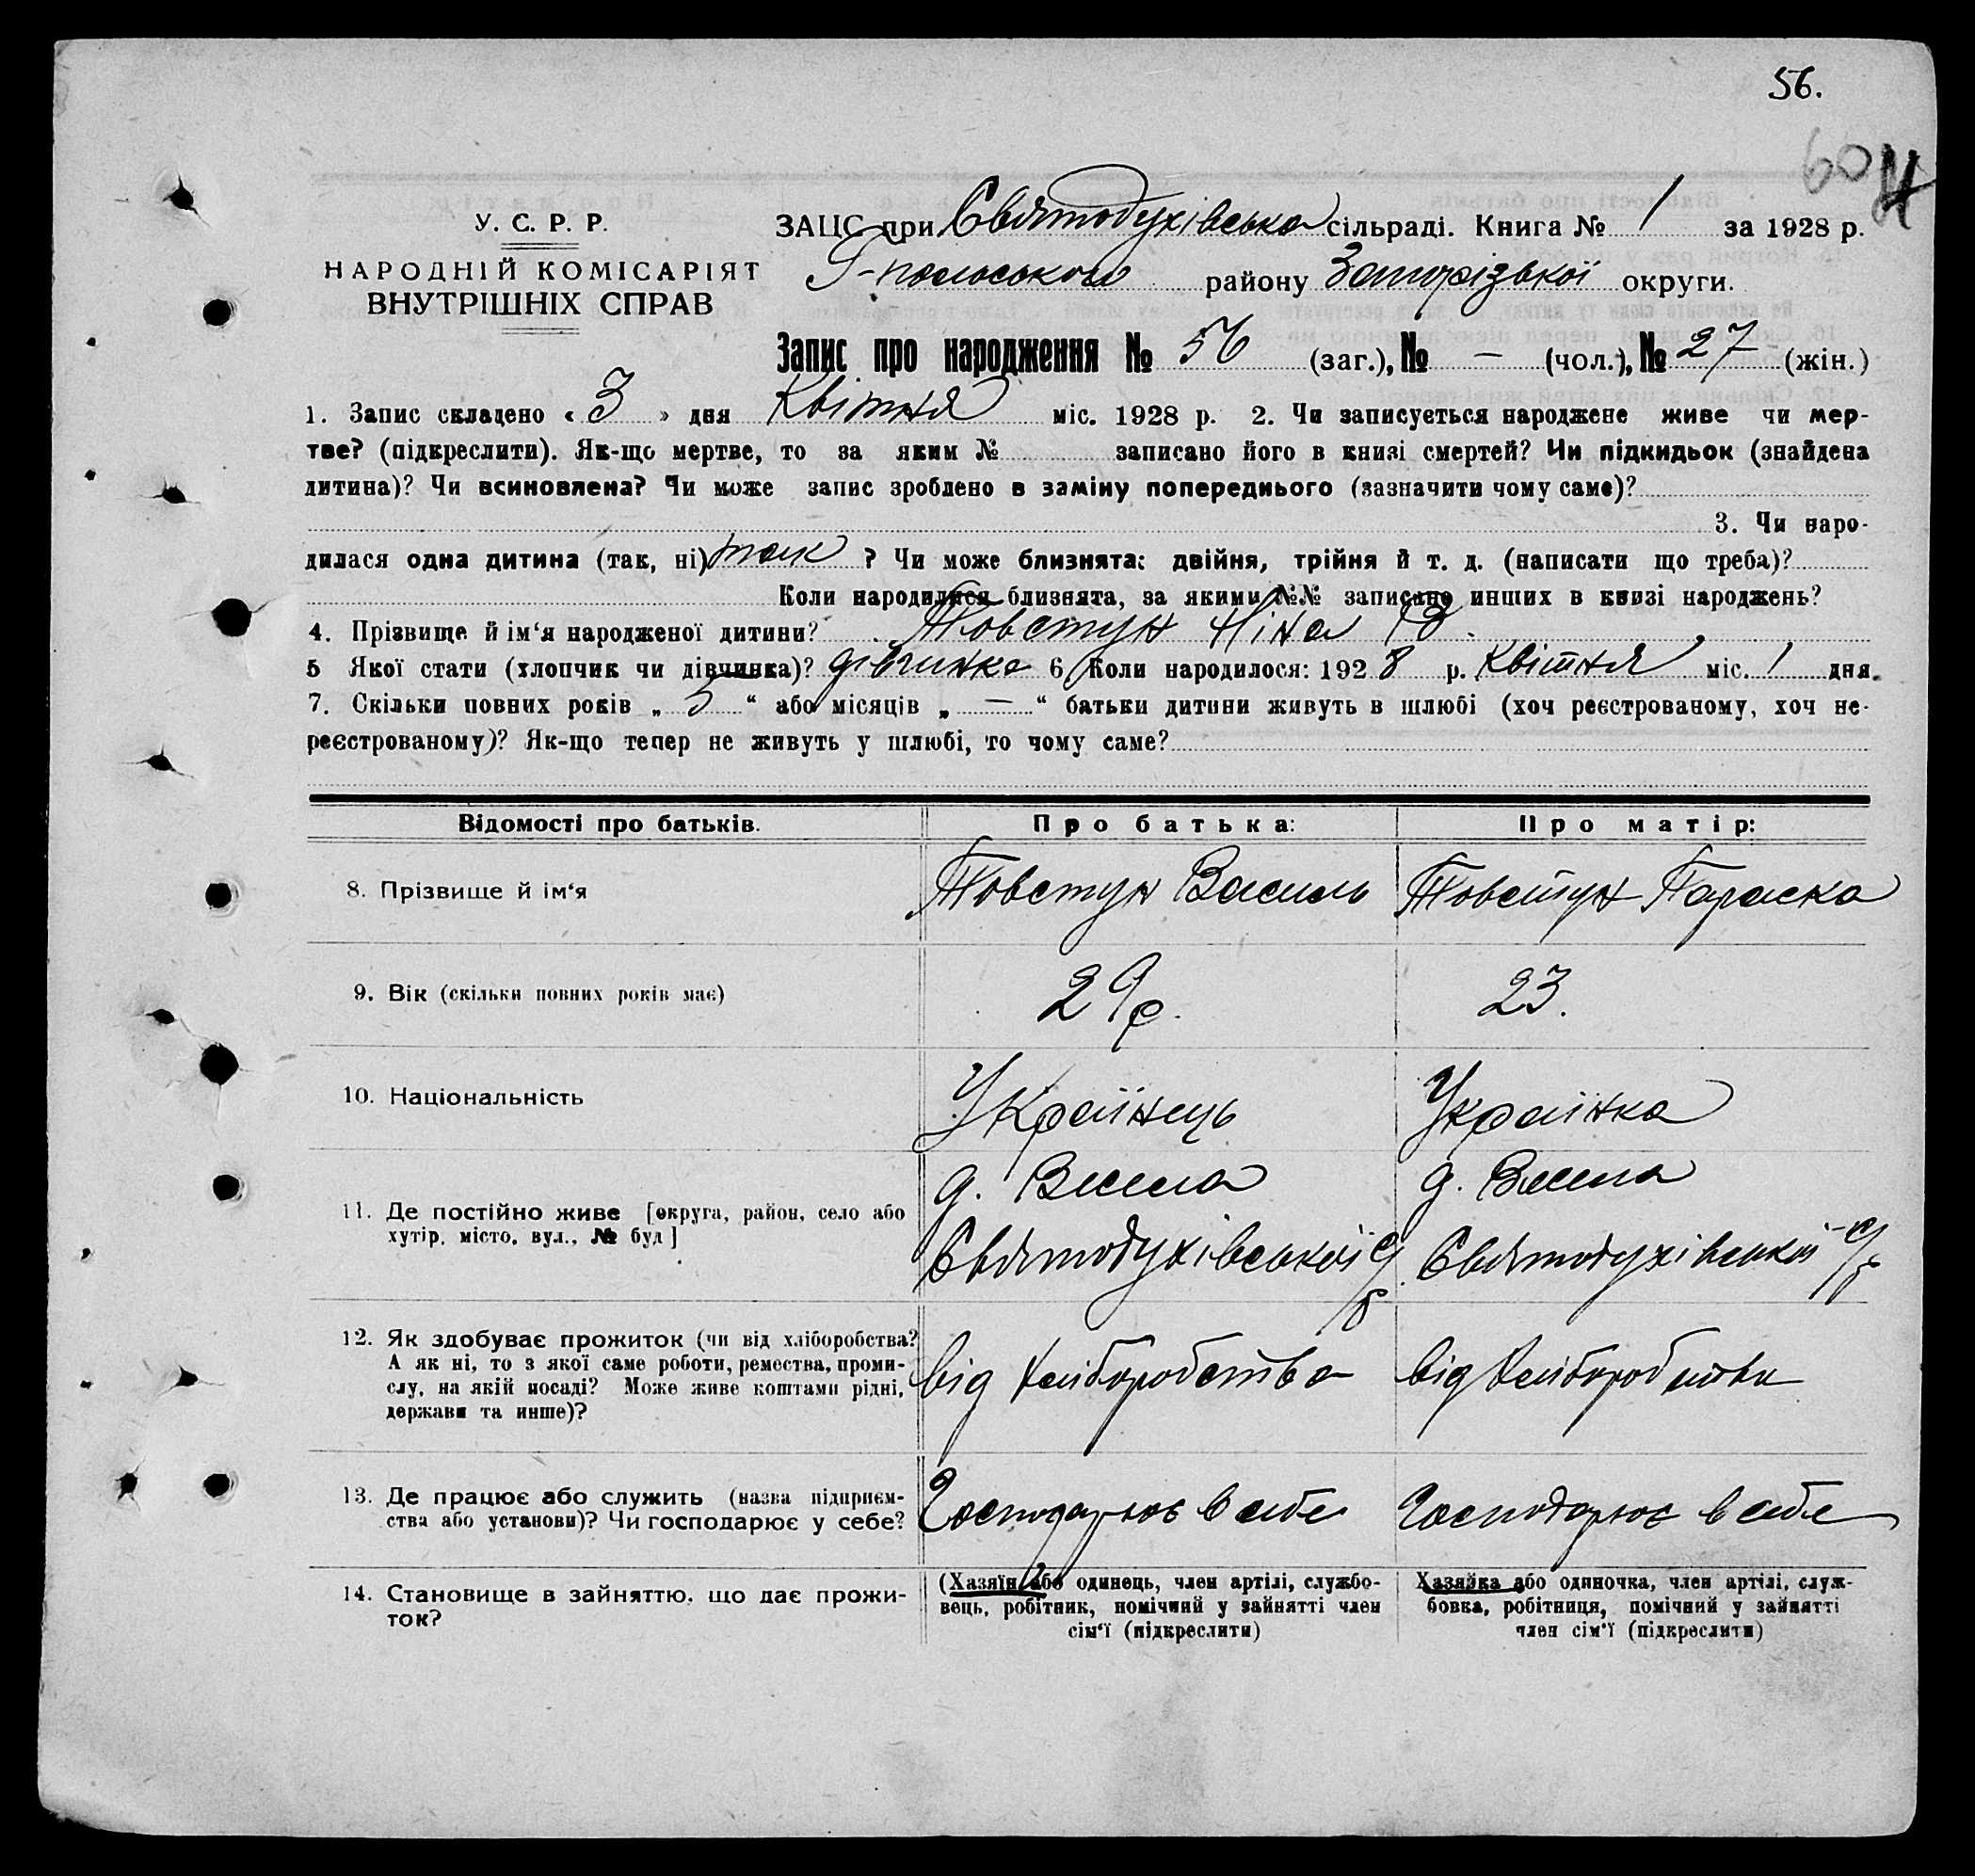 56.
60
У. С. Р. Р.
НАРОДНІЙ КОМІСАРІЯТ
ВНУТРІШНІХ СПРАВ
ЗАЦС при Святодухівська сільраді. Книга № 1 за 1928 р.
району Запорізької округи.
Запис про народження № 56 (заг.), № — (чол.), № 27 (жін.)
1. Запис складено « 3 » дня Квітня міс. 1928 р. 2. Чи записується народжене живе чи мер-
тве? (підкреслити). Як-що мертве, то за яким № записано його в книзі смертей? Чи підкидьок (знайдена
дитина)? Чи всиновлена? Чи може запис зроблено в заміну попереднього (зазначити чому саме)?
3. Чи наро-
дилася одна дитина (так, ні) так ? Чи може близнята: двійня, трійня й т. д. (написати що треба)?
Коли народилися близнята, за якими №№ записано инших в книзі народжень?
4. Прізвище й ім‘я народженої дитини? Товстун Ніна В.
5 Якої стати (хлопчик чи дівчинка)? дівчинка 6 Коли народилося: 1928 р. Квітня міс. 1 дня.
7. Скільки повних років „ 5 “ або місяців „ — “ батьки дитини живуть в шлюбі (хоч реєстрованому, хоч не-
реєстрованому)? Як-що тепер не живуть у шлюбі, то чому саме?
Відомості про батьків. Про батька: Про матір:
8. Прізвище й ім‘я Товстун Василь Товстун Параска
9. Вік (скільки повних років має) 29 р. 23.
10. Національність Українець Українка
д. Весела д. Весела
11. Де постійно живе [округа, район, село або
хутір, місто, вул., № буд] Святодухівської с/р Святодухівської с/р
12. Як здобуває прожиток (чи від хліборобства?
А як ні, то з якої саме роботи, ремества, проми-
слу, на якій посаді? Може живе коштами рідні, від хліборобства від хліборобства
держави та инше)?
13. Де працює або служить (назва підприєм-
ства або установи)? Чи господарює у себе? Господарює в себе Господарює в себе
14. Становище в зайняттю, що дає прожи-
ток?
(Хазяїн або одинець, член артілі, службо-
вець, робітник, помічний у зайнятті член
сім‘ї (підкреслити)
Хазяйка або одиночка, член артілі, служ-
бовка, робітниця, помічний у зайнятті
член сім‘ї (підкреслити)